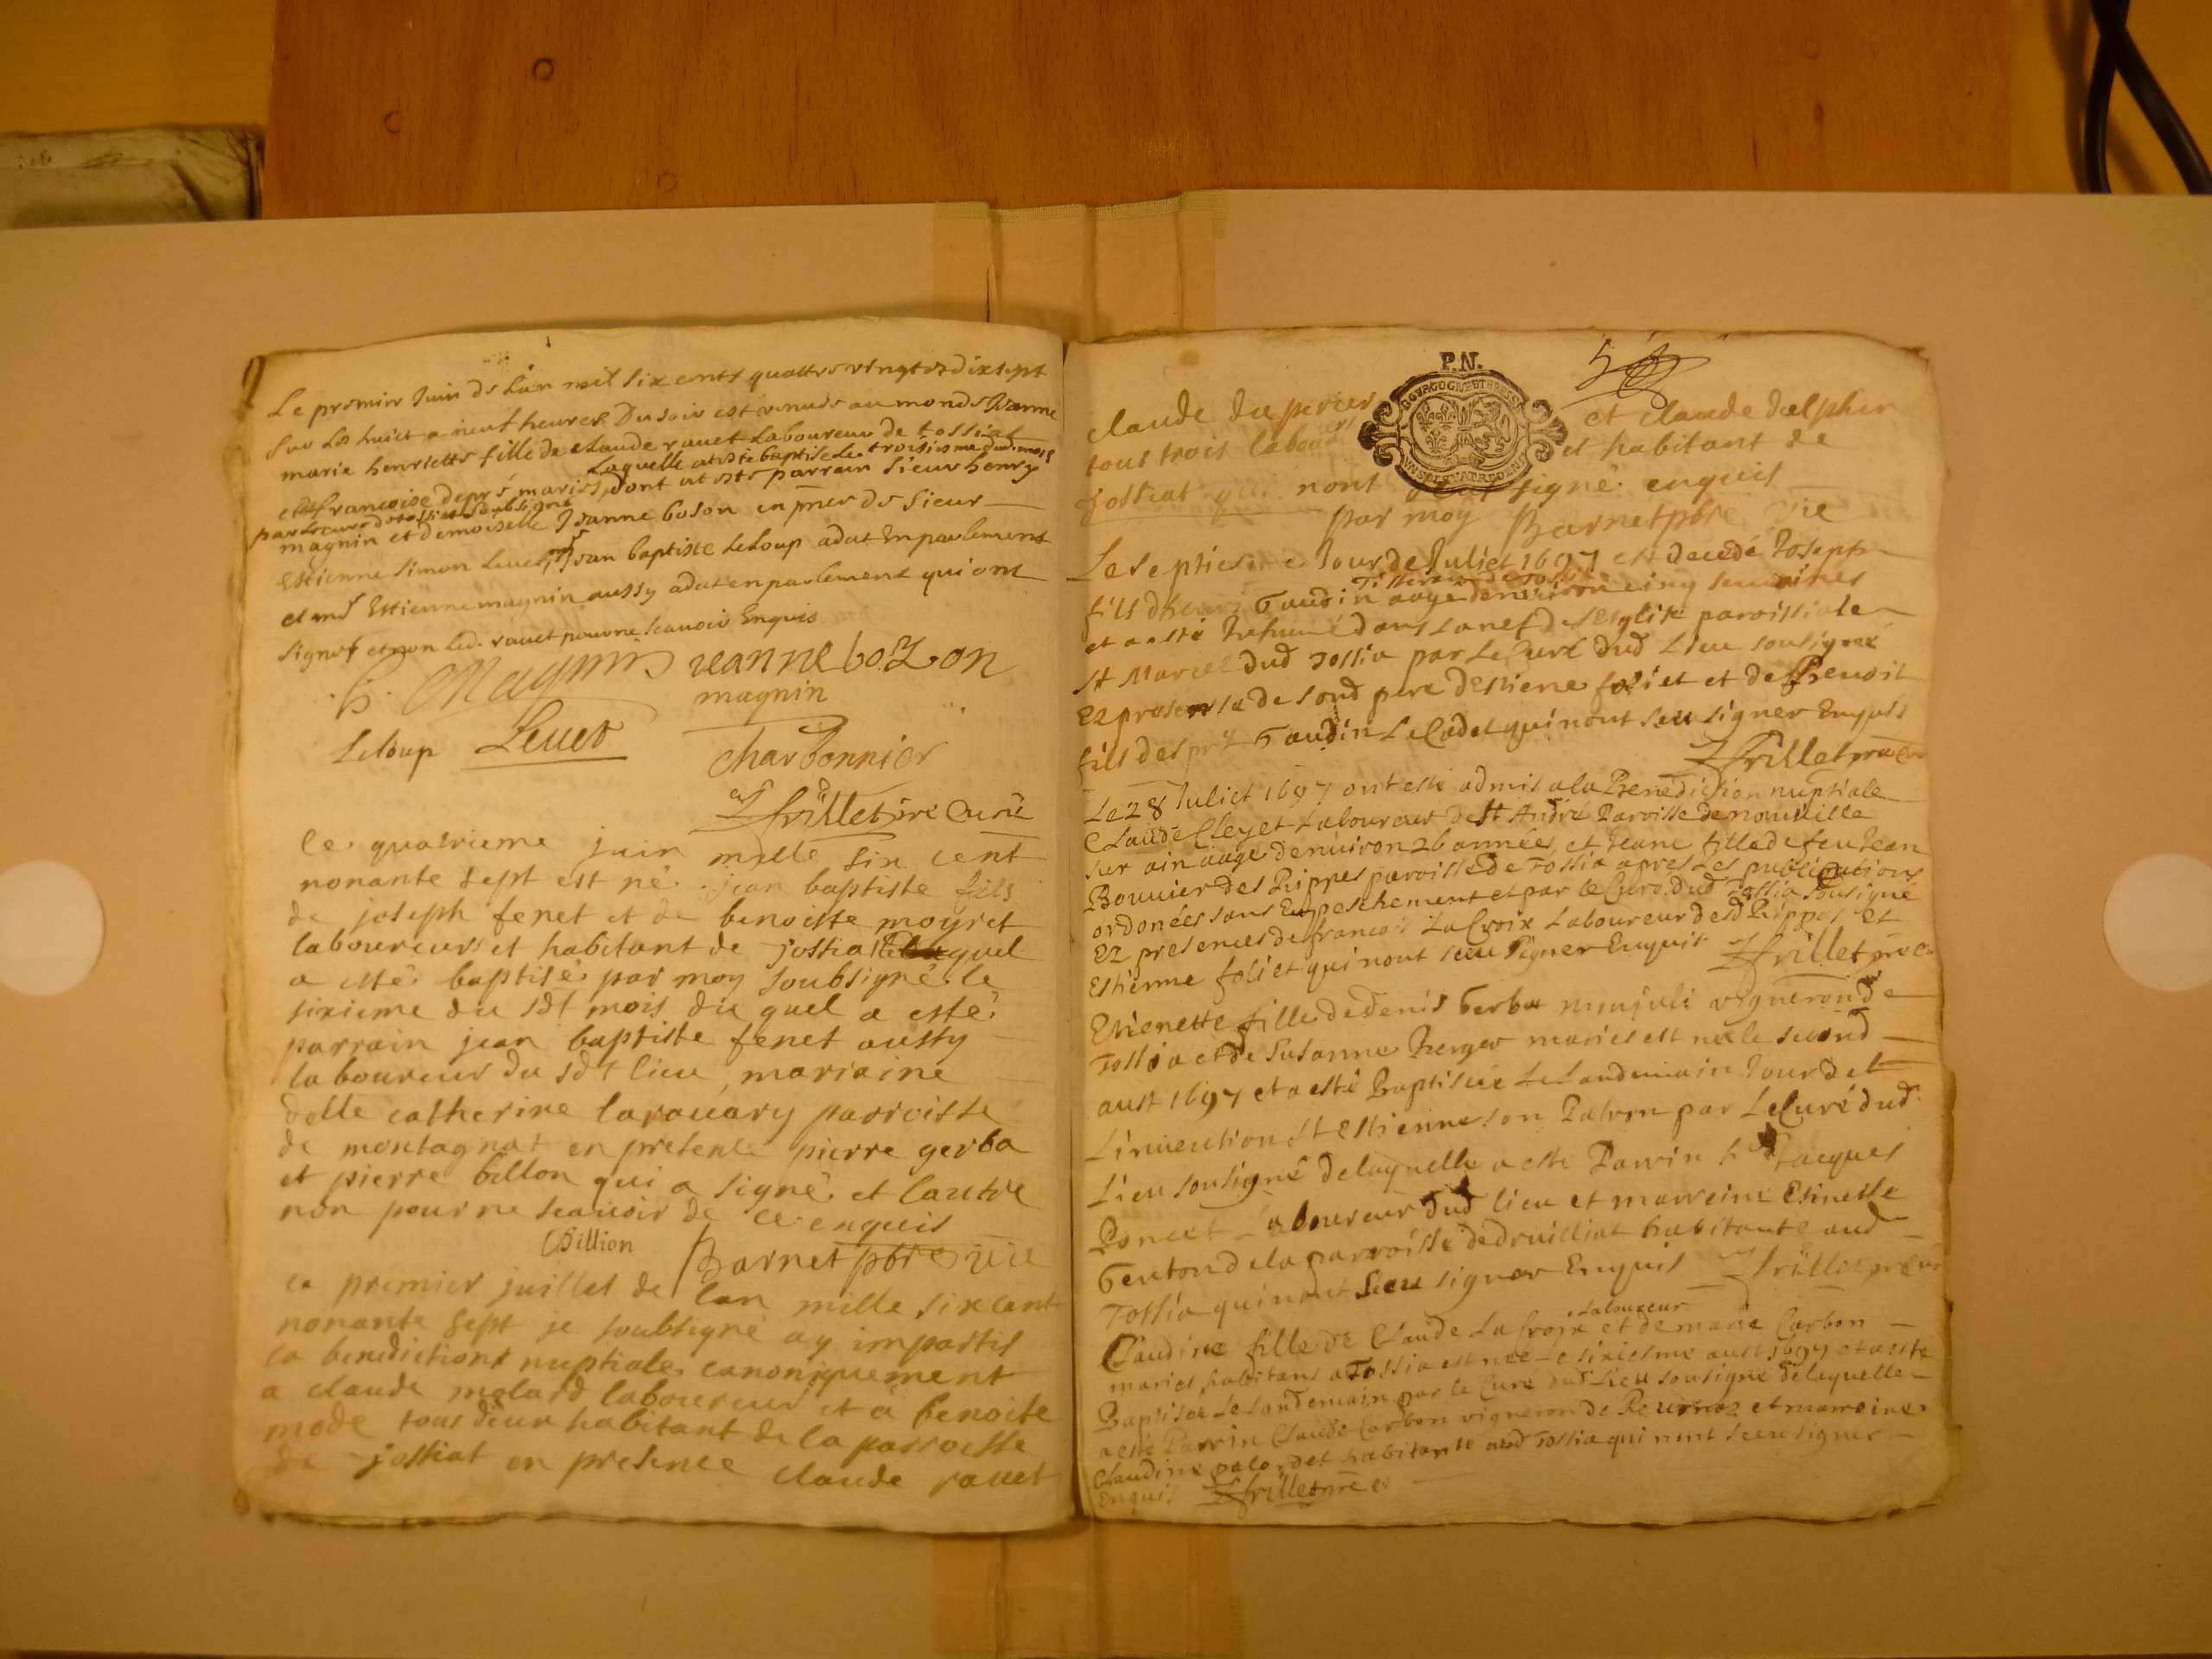 Le premier Juin de Lan mil six cents quattre vingts dixsept
sur Les huict a neuf heures Du soir est venuee au monde Jeanne
marie henriette fille de claude rauet Laboureur de tossiat
Laquelle at este baptisée Le troisiesme dud. mois
et de francoise dupré mariés, dont at este parrain sieur henry
par Le curé de tossiat soubsigné
magnin et demoiselle Jeanne boson en pnce de sieur
Estienne simon Leuet, Jean baptiste Leloup aduat En parlement
et mr Estienne magnin aussy aduat en parlement qui ont
signes et non led. rauet pour ne scauoir Enquis
h. Magnin jeanne bozon
magnin
Leloup Leuet
charbonnier
frillet pre Curé
le quatrieme juin mille six cent
nonante sept est né jean baptiste fils
de joseph fenet et de benoitte moyret
laboureurs et habitant de jossiat lequel
a esté baptisé par moy soubsigné le
sixieme du sdt mois du quel a esté
parrain jean baptiste fenet aussy
laboureur du sdt lieu, marraine
delle catherine larouary parroisse
de montagnat en presence pierre gerba
et pierre billon qui a signé et lautre
non pour ne scauoir de ce enquis
Billion Barnet pbre vic
le premier juillet de lan mille six cent
nonante sept je soubsigné ay impartis
la benediction nuptiale canoniquement
a claude molard laboureur et a benoite
mode tous deux habitant de la parroisse
de jossiat en presence claude rauet
P.N.
claude du perier et claude dalphin
tous trois laboureurs et habitant de
jossiat qui nont signé enquis
par moy Barnet pbre vic
Le septiesme Jour de Juliet 1697 est decedé Joseph
Tisserand de Tossia
fils dhenri Gaudin aagé denuiron cinq semaines
et a esté Inhumé dans la nef de lesglise paroissiale
St Marcel dud Tossia par Le Curé dud Lieu sousigné
Ez presence de sond pere destiene foliet et de Benoit
fils des pre Gaudin Le Cadet qui nont sceu signer Enquis
frillet pre Cu
Le 28 Juliet 1697 ont esté admis a la Benediction nuptiale
Claude Cleyet Laboureur de St André Paroisse de neuuille
sur ain aagé denuiron 26 années, et Jeane fille de feu Jean
Bouuier des Rippes paroisse de Tossia apres les publications
ordonées sans Empeschement et par le Curé dud Tossia sousigné
Ez presences de francois La Croix Laboureur desd Rippes et
Estienne foliet qui nont sceu signer Enquis frillet pre C
Etienette fille de denis Gerba vigneron de
Tossia et de Susanne Berger mariés est née le second
aust 1697 et a esté Baptisée Le Landemain Jour de
Linuention St Estienne son Patron par Le Curé dud
Lieu sousigné de laquelle a esté Parrin Jacques
Poncet Laboureur dud lieu et marreine Etinette
Genton de la parroisse de druilliat habitante aud
Tossia qui nont sceu signer Enquis frillet pre cu
Laboureur
Claudine fille de Claude La Croix et de marie Carbon
mariés habitans a Tossia est née le sixiesme aust 1697 et a esté
Baptisée Le Landemain par le Curé dud Lieu sousigné de laquelle
a esté Parrin Claude Carbon vigneron de Reuonas et marreine
Claudine palordet habitante aud Tossia qui nont sceu signer
Enquis frillet pre c